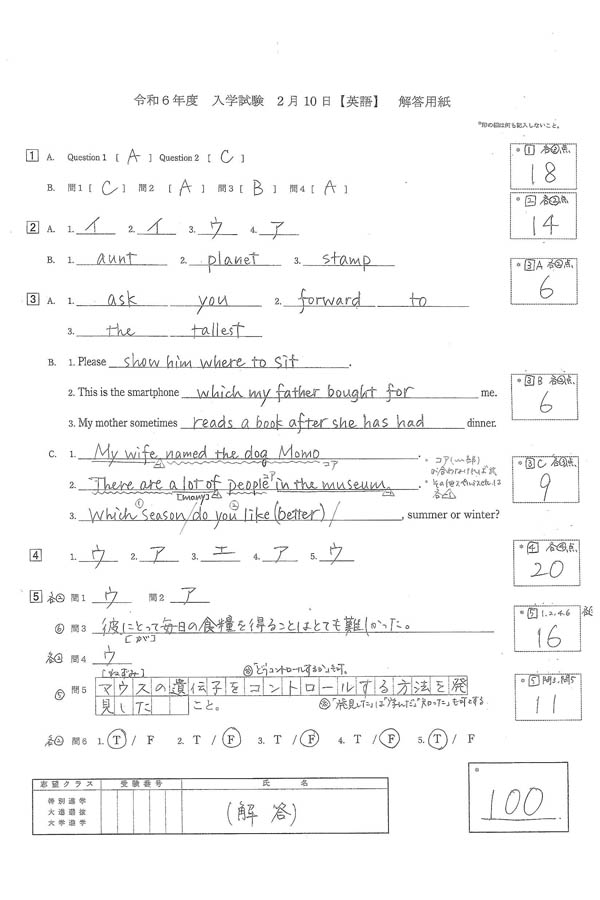 令和6年度 入学試験 2月10日【英語】 解答用紙
*印の欄は何も記入しないこと。
1 A. Question 1 [ A ] Question 2 [ C ]
B. 問1 [ C ] 問2 [ A ] 問3 [ B ] 問4 [ A ]
* 1 各③点
18
2 A. 1. イ 2. イ 3. ウ 4. ア
B. 1. aunt 2. planet 3. stamp
* 2 各②点
14
3 A. 1. ask you 2. forward to
3. the tallest
* 3 A 各②点
6
B. 1. Please show him where to sit .
2. This is the smartphone which my father bought for me.
3. My mother sometimes reads a book after she has had dinner.
* 3 B 各②点
6
C. 1. My wife named the dog Momo .
コア
2. There are a lot of people in the museum .
[many] コア
3. Which season/do you like (better)/ , summer or winter?
① ②
* 3 C 各③点
9
4 1. ウ 2. ア 3. エ 4. ア 5. ウ
* 4 各④点
20
5 各② 問1 ウ 問2 ア
⑥ 問3 彼にとって毎日の食糧を得ることはとても難しかった。
[が]
各② 問4 ウ
[ねずみ] ※「どうコントロールするか」も可。
⑤ 問5 マウスの遺伝子をコントロールする方法を発
見した こと。
※「発見した」は「学んだ」「知った」も可とする
各② 問6 1. T / F 2. T / F 3. T / F 4. T / F 5. T / F
* 5 1,2,4,6
16
* 5 問3,問5
11
志望クラス 受験番号 氏 名
特別進学
大進選抜
大学進学
(解答)
*
100